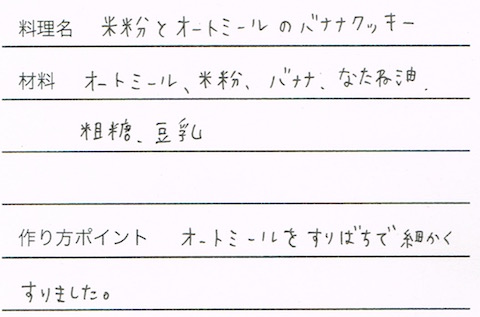 料理名 米粉とオートミールのバナナクッキー
材料 オートミール、米粉、バナナ、なたね油、
粗糖、豆乳
作り方ポイント オートミールをすりばちで細かく
すりました。